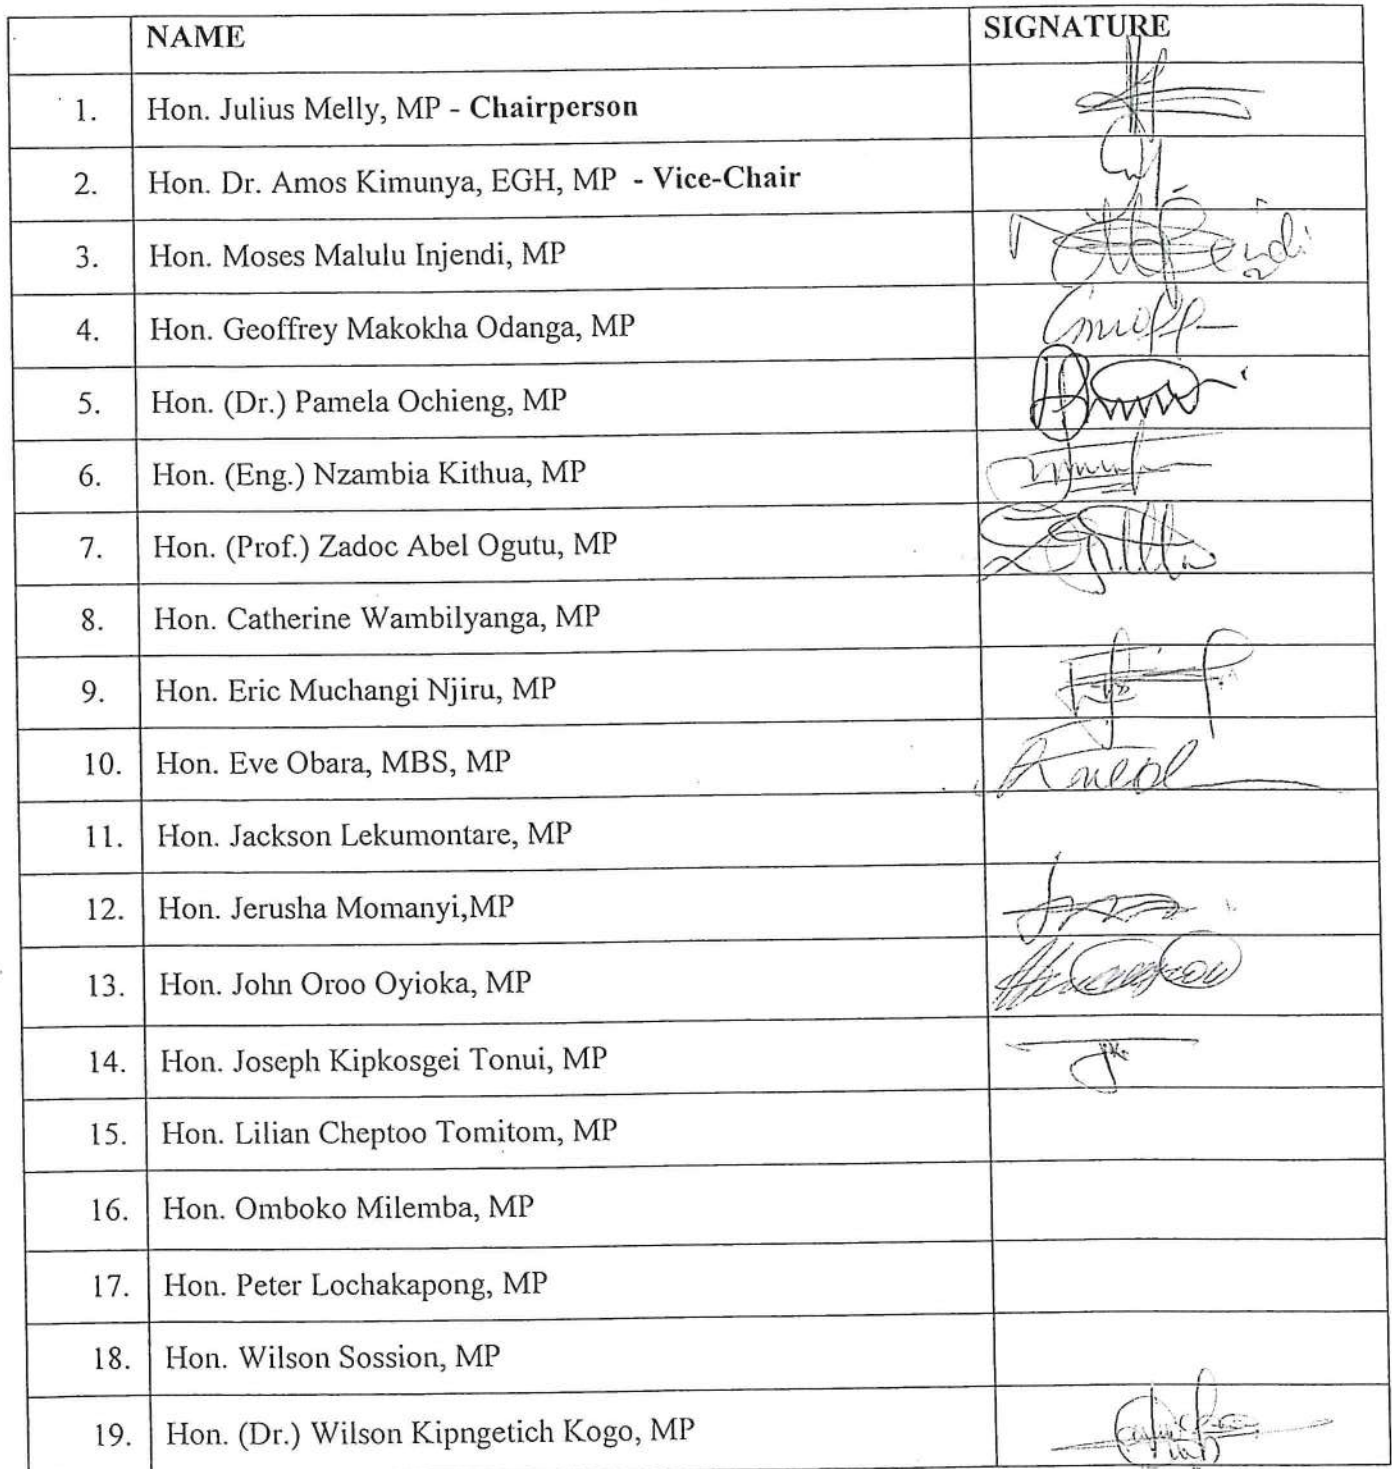 NAME SIGNATURE
1. Hon. Julius Melly, MP - Chairperson
2. Hon. Dr. Amos Kimunya, EGH, MP - Vice-Chair
3. Hon. Moses Malulu Injendi, MP
4. Hon. Geoffrey Makokha Odanga, MP
5. Hon. (Dr.) Pamela Ochieng, MP
6. Hon. (Eng.) Nzambia Kithua, MP
7. Hon. (Prof.) Zadoc Abel Ogutu, MP
8. Hon. Catherine Wambilyanga, MP
9. Hon. Eric Muchangi Njiru, MP
10. Hon. Eve Obara, MBS, MP
11. Hon. Jackson Lekumontare, MP
12. Hon. Jerusha Momanyi,MP
13. Hon. John Oroo Oyioka, MP
14. Hon. Joseph Kipkosgei Tonui, MP
15. Hon. Lilian Cheptoo Tomitom, MP
16. Hon. Omboko Milemba, MP
17. Hon. Peter Lochakapong, MP
18. Hon. Wilson Sossion, MP
19. Hon. (Dr.) Wilson Kipngetich Kogo, MP